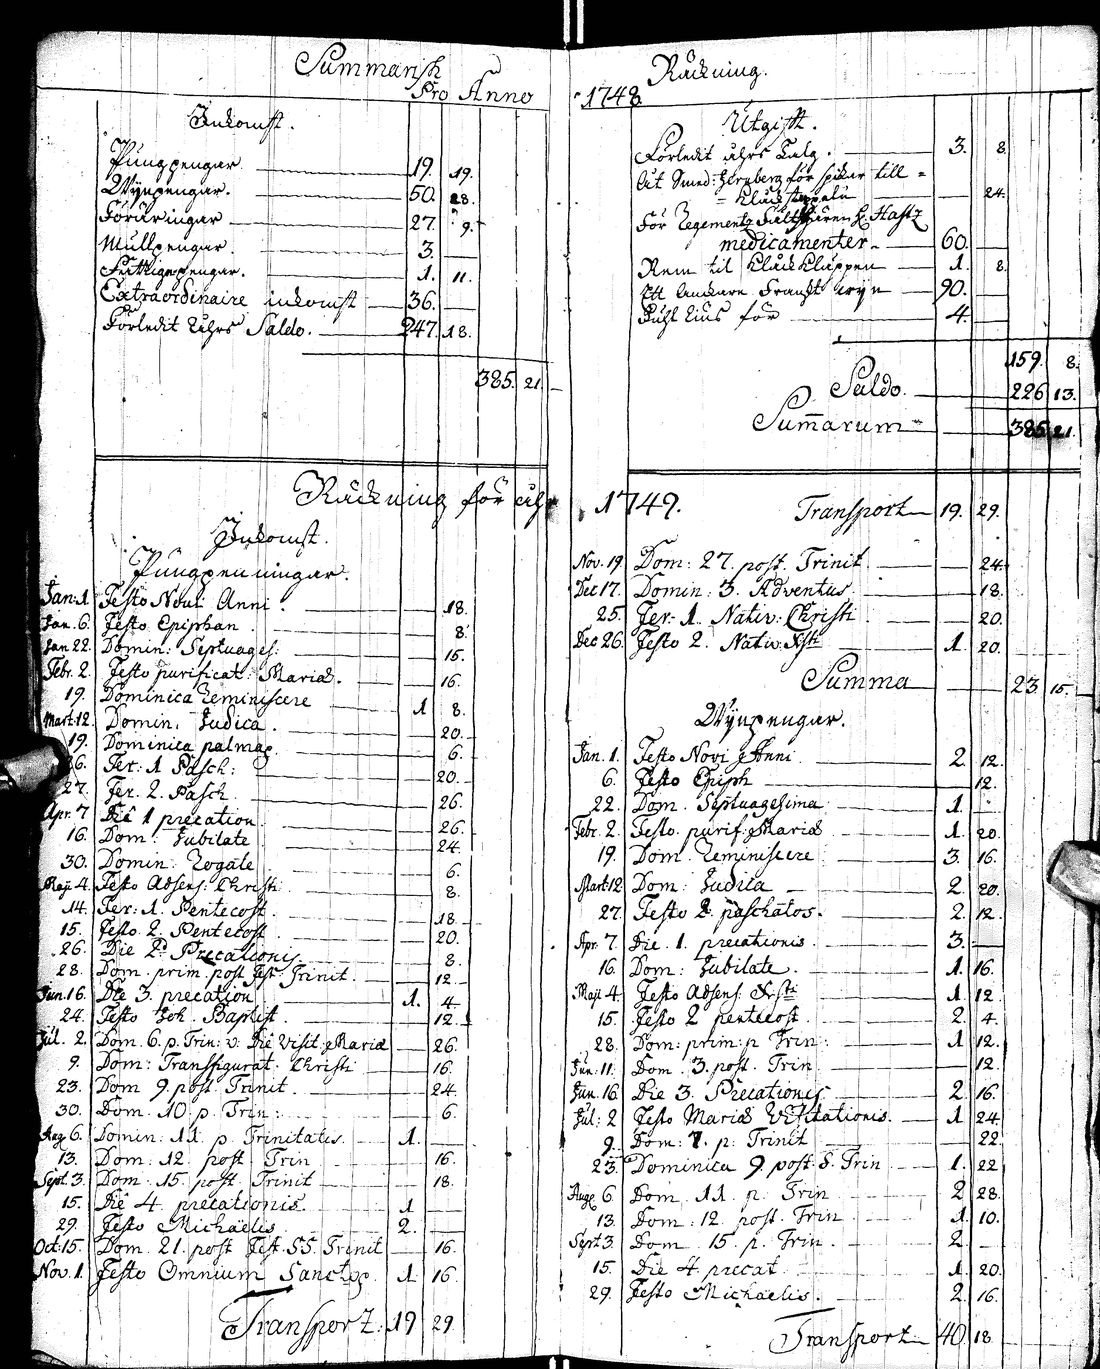 Summarisk
Pro Anno
Inkomst.
Pungpengar 19. 19.
Wijnpengar. 50. 28.
Föräringar 27. 9.
Mullpengar 3.
Fattigepengar. 1. 11.
Extraordinaire inkomst 36.
Förledit Åhrs Saldo. 247. 18.
385. 21.
Räckning för åhr
Inkomst.
Pungpenningar.
Jan: 1. Festo Novi Anni. 18.
Jan. 6. Festo Epiphan. 8.
Jan 22. Domin: Septuages: 15.
Febr. 2. Festo purificat: Mariæ. 16.
19. Dominica Reminiscere 1 8.
Mart: 12. Domin. Judica. 20.
19. Dominica palmar. 6.
26. Fer: 1 Pasch: 20.
27. Fer. 2. Pasch 26.
Apr. 7 Die 1 precation. 26.
16. Dom: Jubilate 24.
30. Domin: Rogate 6.
Maji 4. Festo Adsens: Christi 8.
14. Fer: 1. Pentecost. 18.
15. Festo 2. Pentecost 20.
26. Die 2. Precationis. 8.
28. Dom. prim. post Fest Trinit. 12.
Jun. 16. Die 3. precation 1. 4.
24. Festo Joh. Baptist. 12.
Jul. 2. Dom. 6. p. Trin: v. Die Visit: Mariæ 26.
9. Dom: Transfigurat. Christi 16.
23. Dom 9. post Trinit 24.
30. Dom. 10 p. Trin: 6.
Aug 6. Domin: 11. p. Trinitatis. 1.
13. Dom: 12. post Trin 16.
Sept. 3. Dom. 15. post. Trinit 18.
15. Die 4. precationis. 1
29. Festo Michaëlis 2.
Oct: 15. Dom. 21. post Fest. SS. Trinit 16.
Nov. 1. Festo Omnium Sanctor. 1. 16.
Transport. 19 29.
Räckning.
1748.
Utgift.
Förledit åhrs Talg. 3. 8.
för spikar till =
= 24.
För Regementz Fältskären H. Hastz
medicamenter. 60.
Rem til Klåck Kläppen 1. 8.
Ett anckare Franskt wijn 90.
för 4.
159. 8.
Saldo. 226 13.
Summarum 385 21.
1749.
Transport 19. 29.
Nov. 19 Dom: 27. post. Trinit 24.
Dec 17. Domin: 3. Adventus. 18.
25. Fer. 1. Nativ: Christi 20.
Dec 26. Festo 2. Nativ: Xsti 1. 20.
Summa 23 15.
Wijnpengar.
Jan. 1. Festo Novi Anni 2. 12.
6. Festo Epiph 12.
22. Dom. Septuagesima 1.
Febr. 2. Festo purif: Mariæ 1. 20.
19. Dom. Reminiscere 3. 16.
Mart: 12 Dom: Judica 2. 20.
27. Festo 2. paschatos. 2. 12.
Apr. 7. Die. 1. precationis. 3.
16. Dom: Jubilate. 1. 16.
Maji 4. Festo Adsens: Xsti 1. 12.
15. Festo 2 pentecost. 2. 4.
28. Dom: prim: p Trin: 1. 12.
Jun: 11. Dom. 3. post. Trin 12.
Jun. 16. Die 3. Precationis 2. 16.
Jul: 2 Festo Mariæ Visitationis. 1. 24.
9. Dom: 7. p: Trinit 22.
23. Dominica 9. post. S. Trin 1. 22.
Aug. 6. Dom. 11. p. Trin 2. 28.
13. Dom: 12. post. Trin 1. 10.
Sept 3. Dom. 15. p. Trin. 2.
15. Die 4 precat. 1. 20.
29. Festo Michaelis. 2. 16.
Transport 40 18